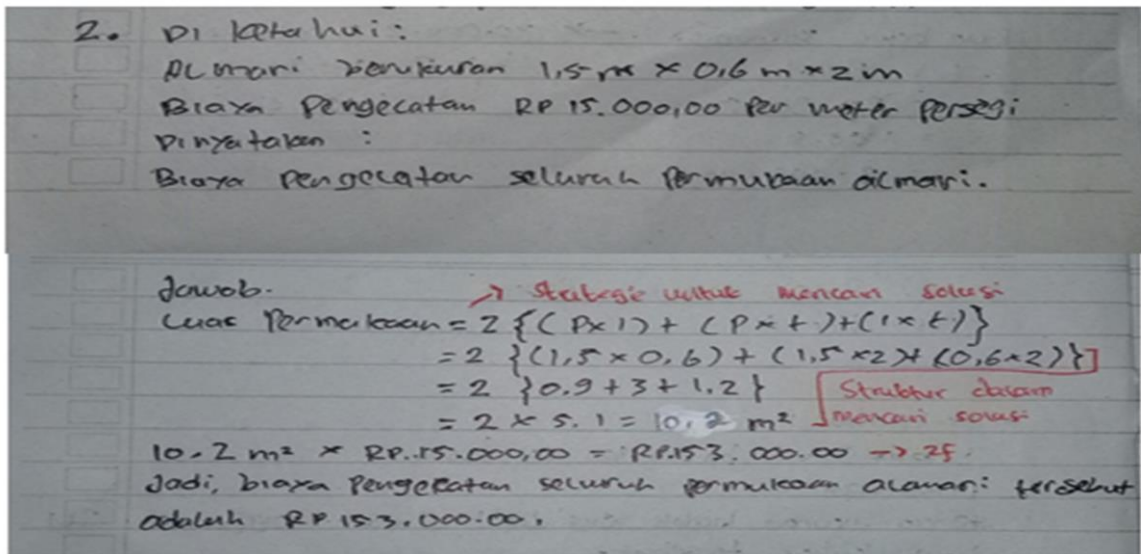 2. Di ketahui:
Almari berukuran 1,5 m × 0,6 m × 2 m
Biaya Pengecatan RP 15.000,00 Per meter Persegi
Dinyatakan :
Biaya Pengecatan seluruh Permukaan almari.
Jawab.
→ Strategic untuk mencari solusi
Luas Permukaan = 2 {(P×l) + (P×t)+(l×t)}
= 2 {(1,5 × 0,6) + (1,5 ×2)+ (0,6×2)}
= 2 {0.9 + 3 + 1.2}
Struktur dalam
= 2 × 5.1 = 10,2 m²
mencari solusi
10.2 m² × RP.15.000,00 = RP.153.000.00 → 25
Jadi, biaya Pengecatan seluruh permukaan almari tersebut
adalah RP 153.000.00.